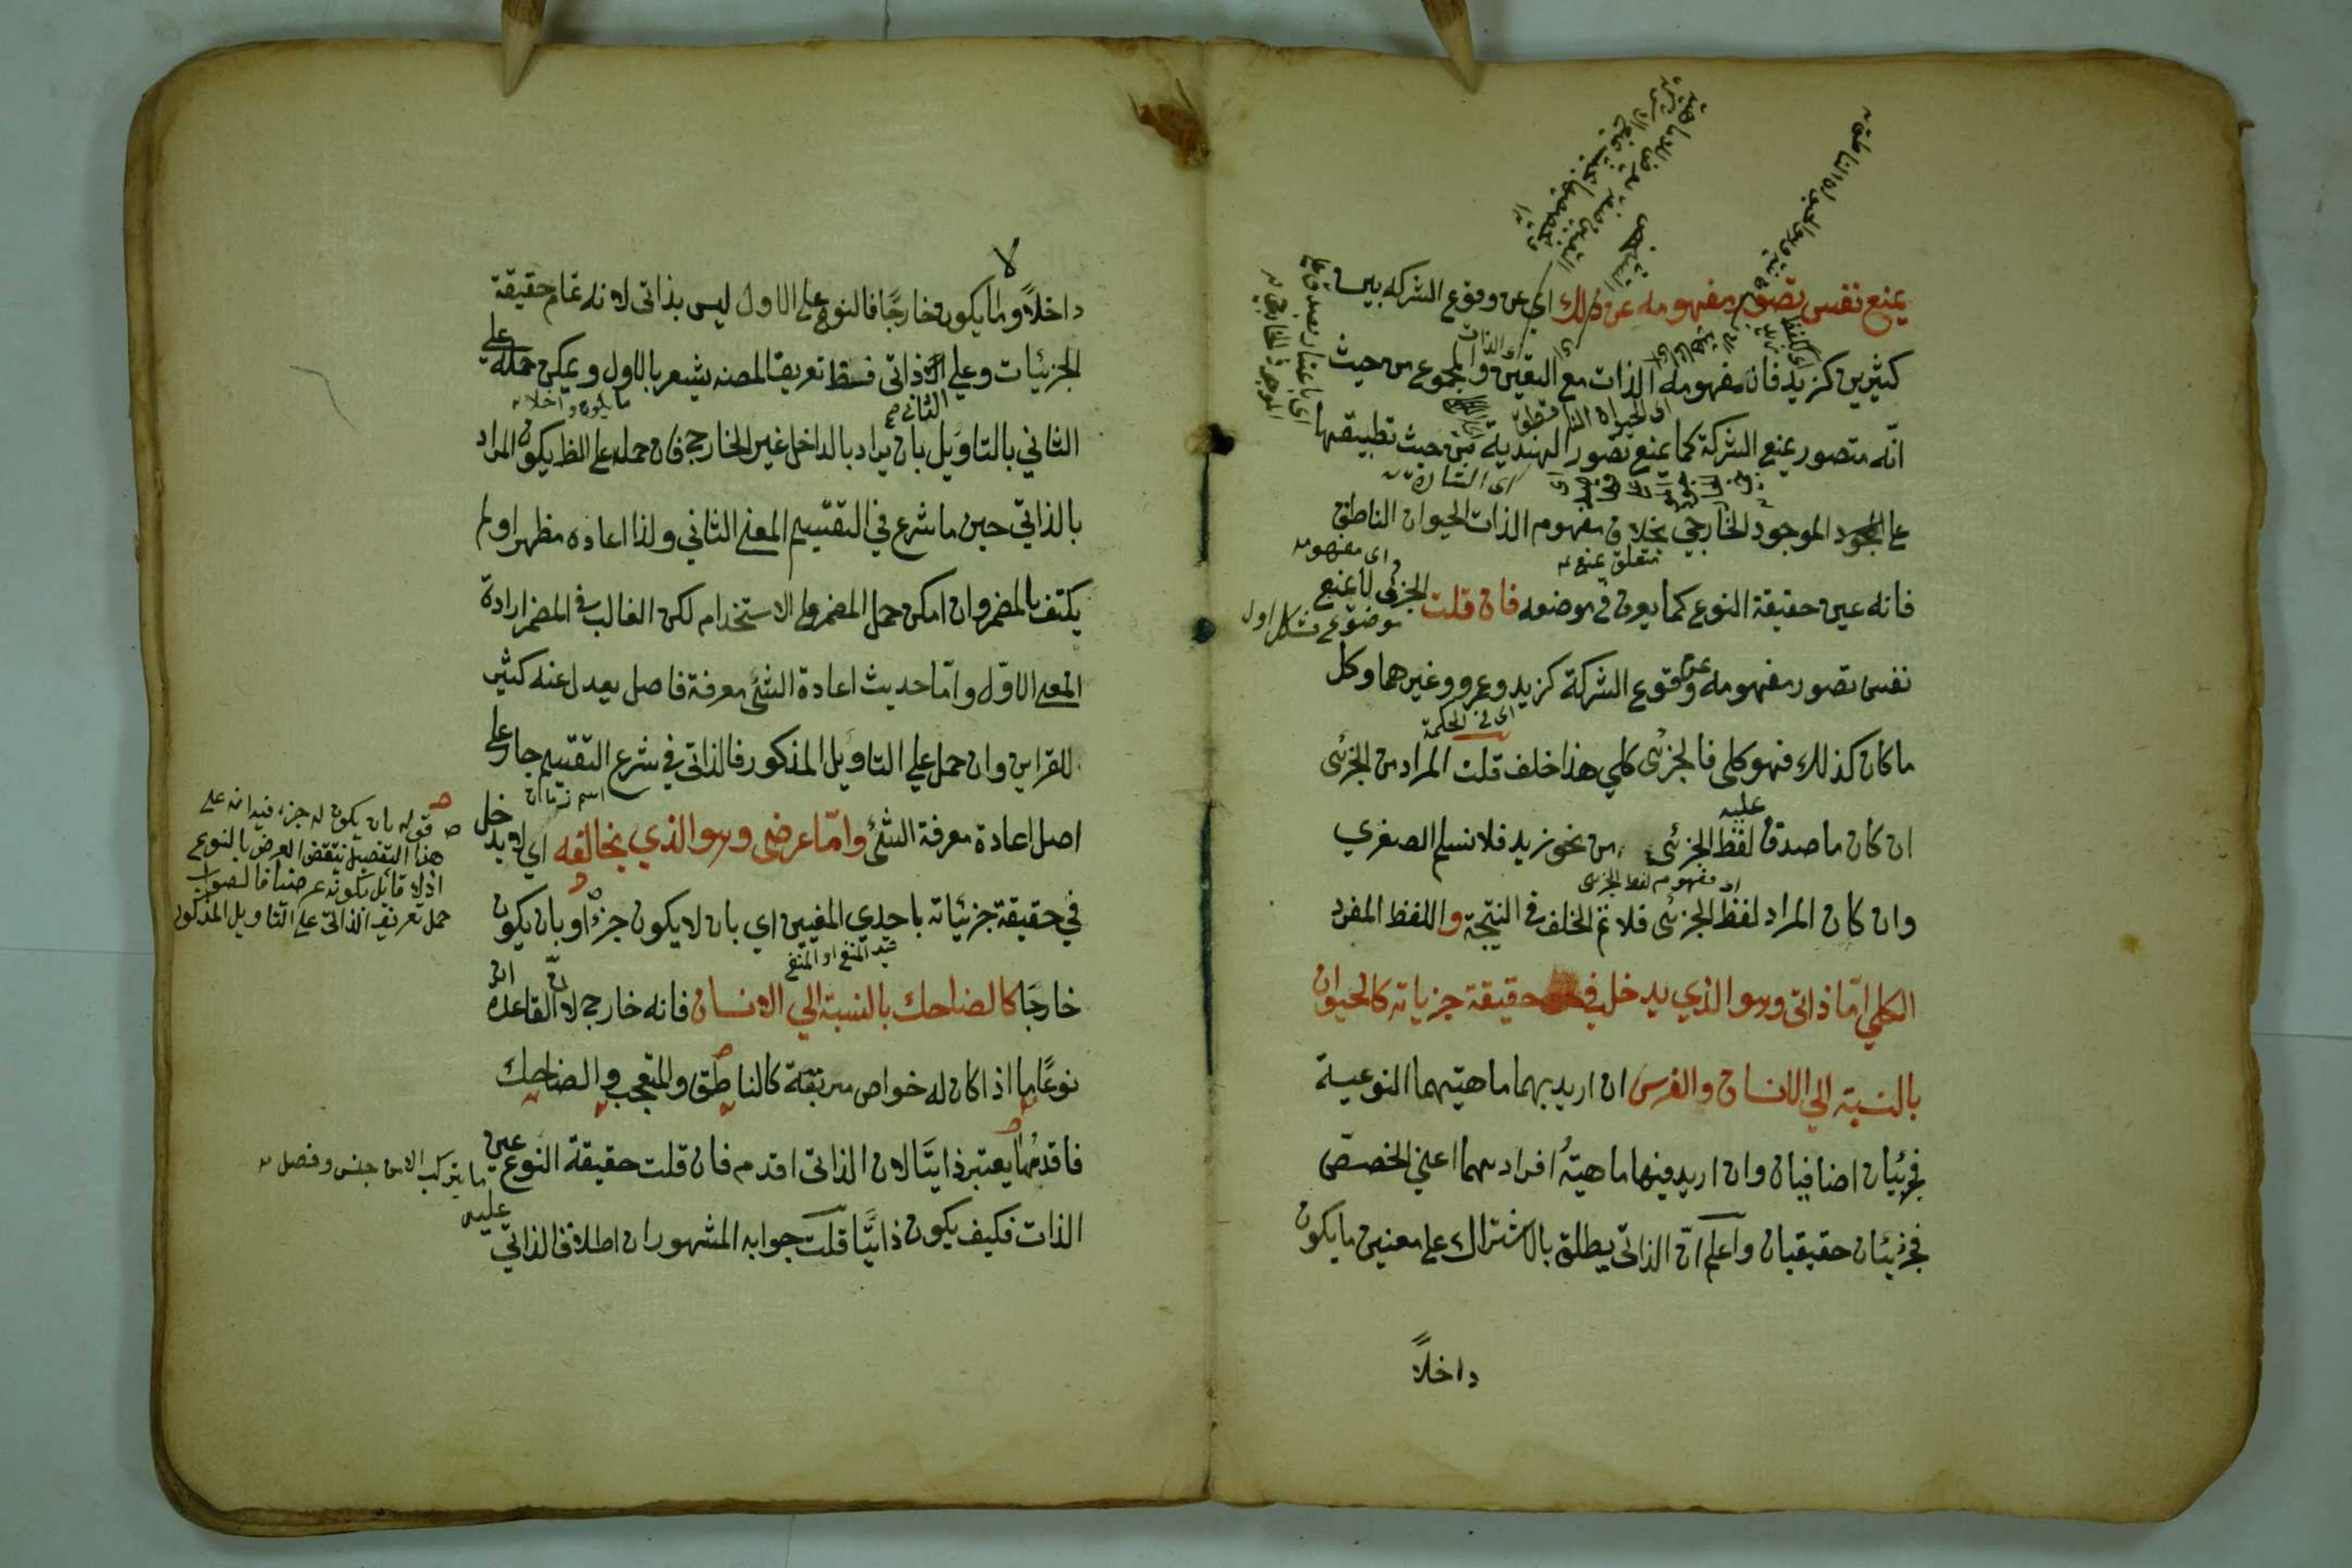 يمنع نفس تصور مفهومه عن ذلك اي عن وقوع الشركه بين
كثيرين كزيد فان مفهومه الذات مع التعين والمجموع من حيث
انّه متصور يمنع الشركة كما يمنع تصور الهندية من حيث تطبيقها
على الموجود الخارجي بخلاف مفهوم الذات الحيوان الناطق
فانه عين حقيقة النوع كما يعرف في موضعه فان قلت الجزئى لا يمنع
نفس تصور مفهومه عن وقوع الشركة كزيد وعمرو وغيرهما وكل
ما كان كذلك فهو كلى فالجزئى كلي هذا خلف قلت المراد من الجزئى
ان كان ما صدق عليه لفظ الجزئى من نحو زيد فلا نسلم الصغري
وان كان المراد لفظ الجزئى فلا تم الخلف في النتيجة واللفظ المفرد
الكلي امّا ذاتى وهو الذي يدخل في حقيقة جزياته كالحيوان
بالنسبة الي الانسان والفرس ان اريد بهما ماهيتهما النوعية
فجزئيان اضافيان وان اريد فيهما ماهيةُ افرادهما اعني الخصص
فجزئيان حقيقيان واعلم انّ الذاتى يطلق بالاشتراك على معنيين ما يكون
داخلاً
اى الحيوان الناطق
اى الشارة
متعلق يمنع
اى مفهومه
موضوع شكل اول
اى في الحكمة
اى مفهوم لفظ الجزئى
اى باعتبار تصدق على
الموجود الخارجى
داخلاً وما لا يكون خارجًا فالنوع على الاول ليس بذاتى لانه تمام حقيقة
الجزئيات وعلي الثاني ذاتى فسقط تعريف المصنه يشعر بالاول ويمكن حمله على
الثاني بالتاويل بان يراد بالداخل غير الخارج فان حمله على الظ يكون المراد
بالذاتي حين ما شرع في التقسيم المعنى الثاني ولذا اعاده مظهرا ولم
يكتف بالمضمر وان امكن حمل المضمر على الاستخدام لكن الغالب في المضمر ارادة
المعنى الاوّل وامّا حديث اعادة الشئ معرفة فاصل يعدل عنه كثير
للقراين وان حمل علي التاويل المذكور فالذاتى في شرع التقسيم جار على
اصل اعادة معرفة الشئ وامّا عرضى وهو الذي يخالفه اي لا يدخل
في حقيقة جزئياته باحدي المعنيين اي بان لا يكون جزءً او بان يكون
خارجًا كالضاحك بالنسبة الي الانسان فانه خارج لان القاعدة ان
نوعًا ما اذا كان له خواص مرتبة كالناطق والمتعجب والضاحك
فاقدمها يعتبر ذاتيًا لان الذاتى اقدم فان قلت حقيقة النوع عين
الذات فكيف يكون ذاتيًّا قلت جوابه المشهور ان اطلاق الذاتي عليه
ما يكون داخلا
اسم زمان
قيد المنفى او النفى
قوله بان يكون له جزء فيه انه على
هذا التفصيل ينتقض العرض بالنوع
اذ لا قائل بكونه عرضيا فالصواب
حمل تعريف الذاتى على التاويل المذكور
ما يتركب الا من جنس وفصل